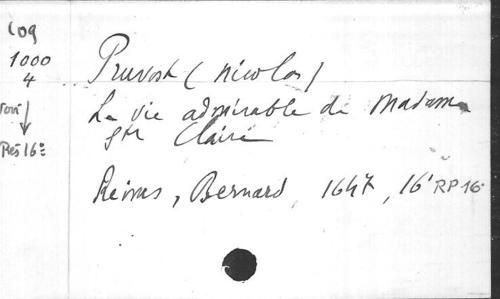 Coq
1000
4
voir
↓
Rés 16°
Pruvost (Nicolas)
La vie admirable de Madame
Ste Claire
Reims, Bernard, 1647, 16° RP-16.